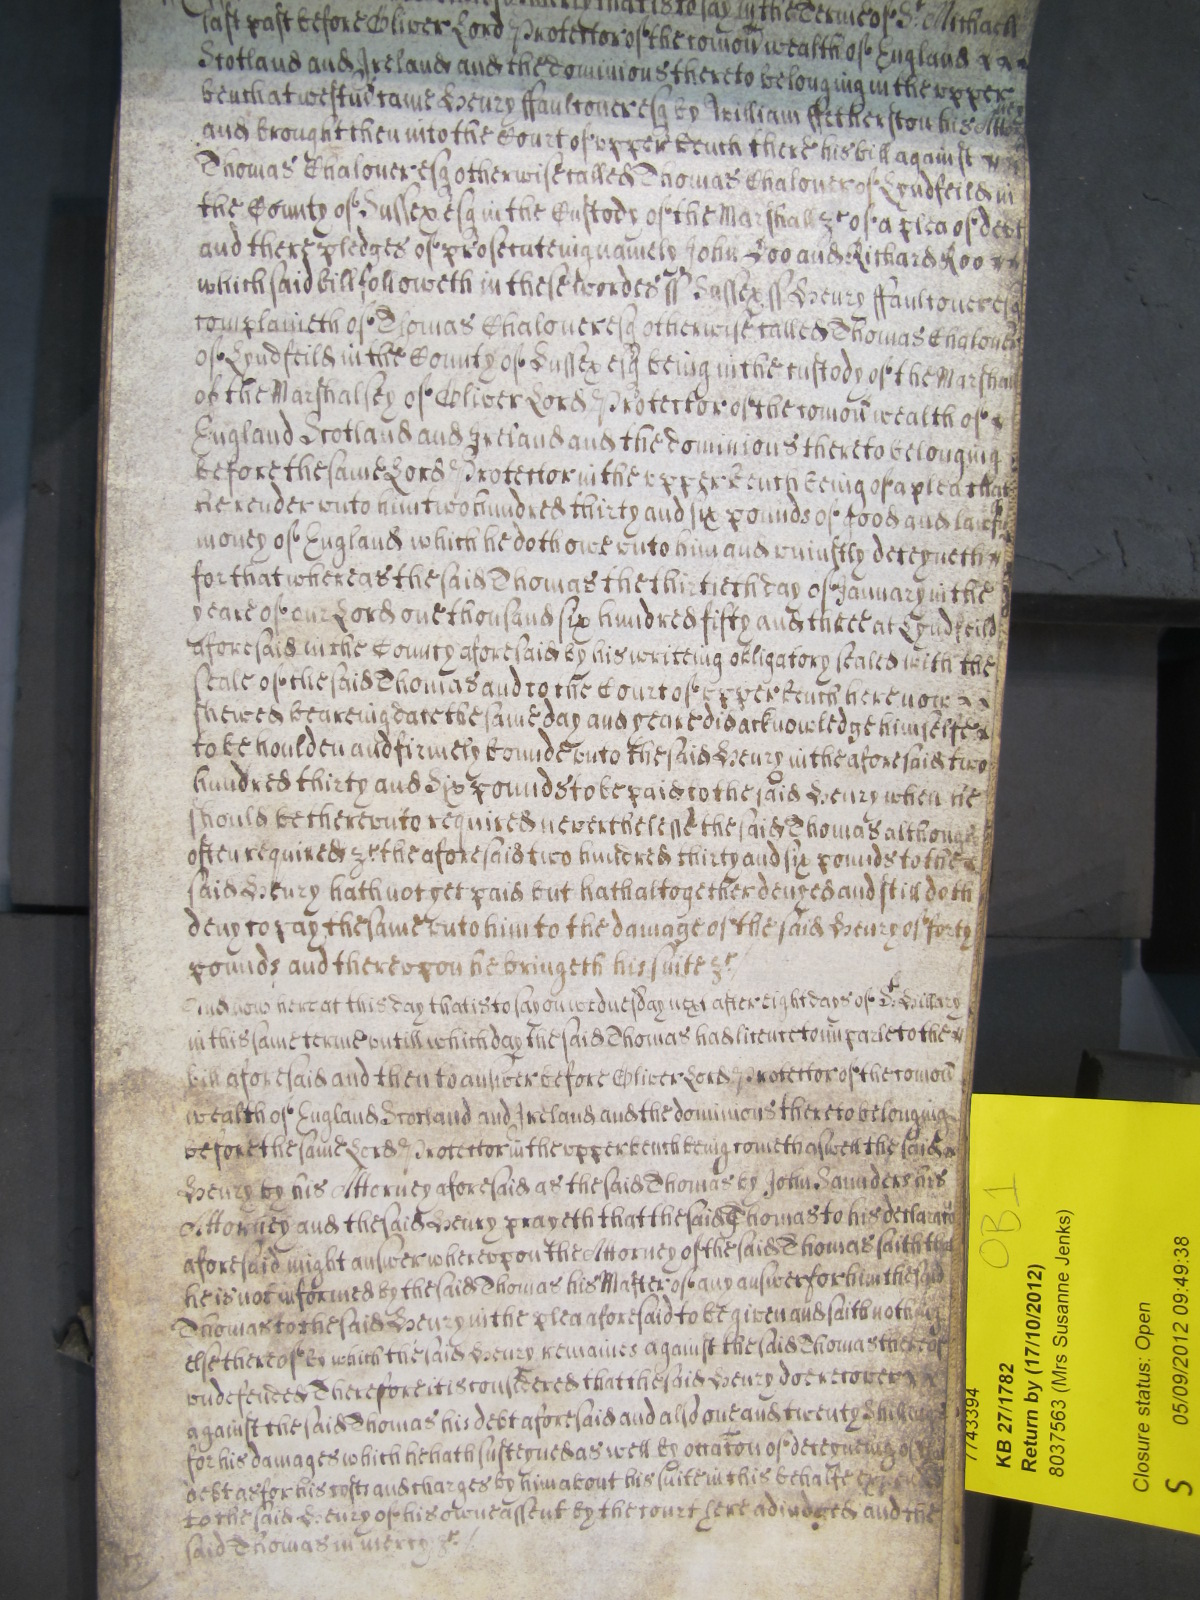 that is to say in the Terme of St. Michaell
last past before Oliver Lord Protector of the comon wealth of England
Scotland and Ireland and the dominions thereto belonging in the upper
bench at westmr came Henry ffaulconer esq by William ffetherston his Attor
and brought then into the Court of upper bench there his bill against
Thomas Chaloner esq otherwise called Thomas Chaloner of Lyndfeild in
the County of Sussex esq in the Custody of the Marshall &c of a plea of debt
and there pledges of prosecuteing namely John Doo and Richard Roo
which said bill followeth in these wordes ss Sussex ss Henry ffaulconer esq
complaineth of Thomas Chaloner esq otherwise called Thomas Chaloner
of Lyndfeild in the County of Sussex esq being in the custody of the Marshall
of the Marshalsey of Oliver Lord Protector of the comon wealth of
England Scotland and Ireland and the dominions thereto belonging
before the same Lord Protector in the upper bench being of a plea that
he render unto him two hundred thirty and six pounds of good and lawfu
money of England which he doth owe unto him and uniustly deteyneth
for that whereas the said Thomas the thirtieth day of January in the
yeare of our Lord one thousand six hundred fifty and three at Lyndfeild
aforesaid in the County aforesaid by his writeing obligatory sealed with the
seale of the said Thomas and to the Court of upper bench here now
shewed beareing date the same day and yeare did acknowledge himselfe
to be houlden and firmely bounde unto the said Henry in the aforesaid two
hundred thirty and Six pounds to be paid to the said Henry when he
should be thereunto required neverthelesse the said Thomas although
often required &c the aforesaid two hundred thirty and six pounds to the
said Henry hath not yet paid but hath altogether denyed and still doth
deny to pay the same unto him to the damage of the said Henry of forty
pounds and thereupon he bringeth his suite &c
And now here at this day that is to say on wednesday next after eight days of St. Hillary
in this same terme untill which day the said Thomas had licence to imparle to the
bill aforesaid and then to answer before Oliver Lord Protector of the comon
wealth of England Scotland and Ireland and the dominions thereto belonging
before the same Lord Protector in the upper bench being cometh aswell the said
Henry by his Attorney aforesaid as the said Thomas by John Saunders his
Attorney and the said Henry prayeth that the said Thomas to his declaracon
aforesaid might answer whereupon the Attorney of the said Thomas saith that
he is not informed by the said Thomas his Master of any answer for him the said
Thomas to the said Henry in the plea aforesaid to be given and saith nothing
else thereof by which the said Henry remaines against the said Thomas thereof
undefended Therefore it is considered that the said Henry doe recover
against the said Thomas his debt aforesaid and also one and twenty Shillings
for his damages which he hath susteyned as well by occacon of deteyneing of
debt as for his costs and charges by him about his suite in this behalfe
to the said Henry of his owne assent by the court here adiudged and the
said Thomas in mercy &c
OB1
7743394
KB 27/1782
Return by (17/10/2012)
8037563 (Mrs Susanne Jenks)
Closure status: Open
05/09/2012 09:49:38
S